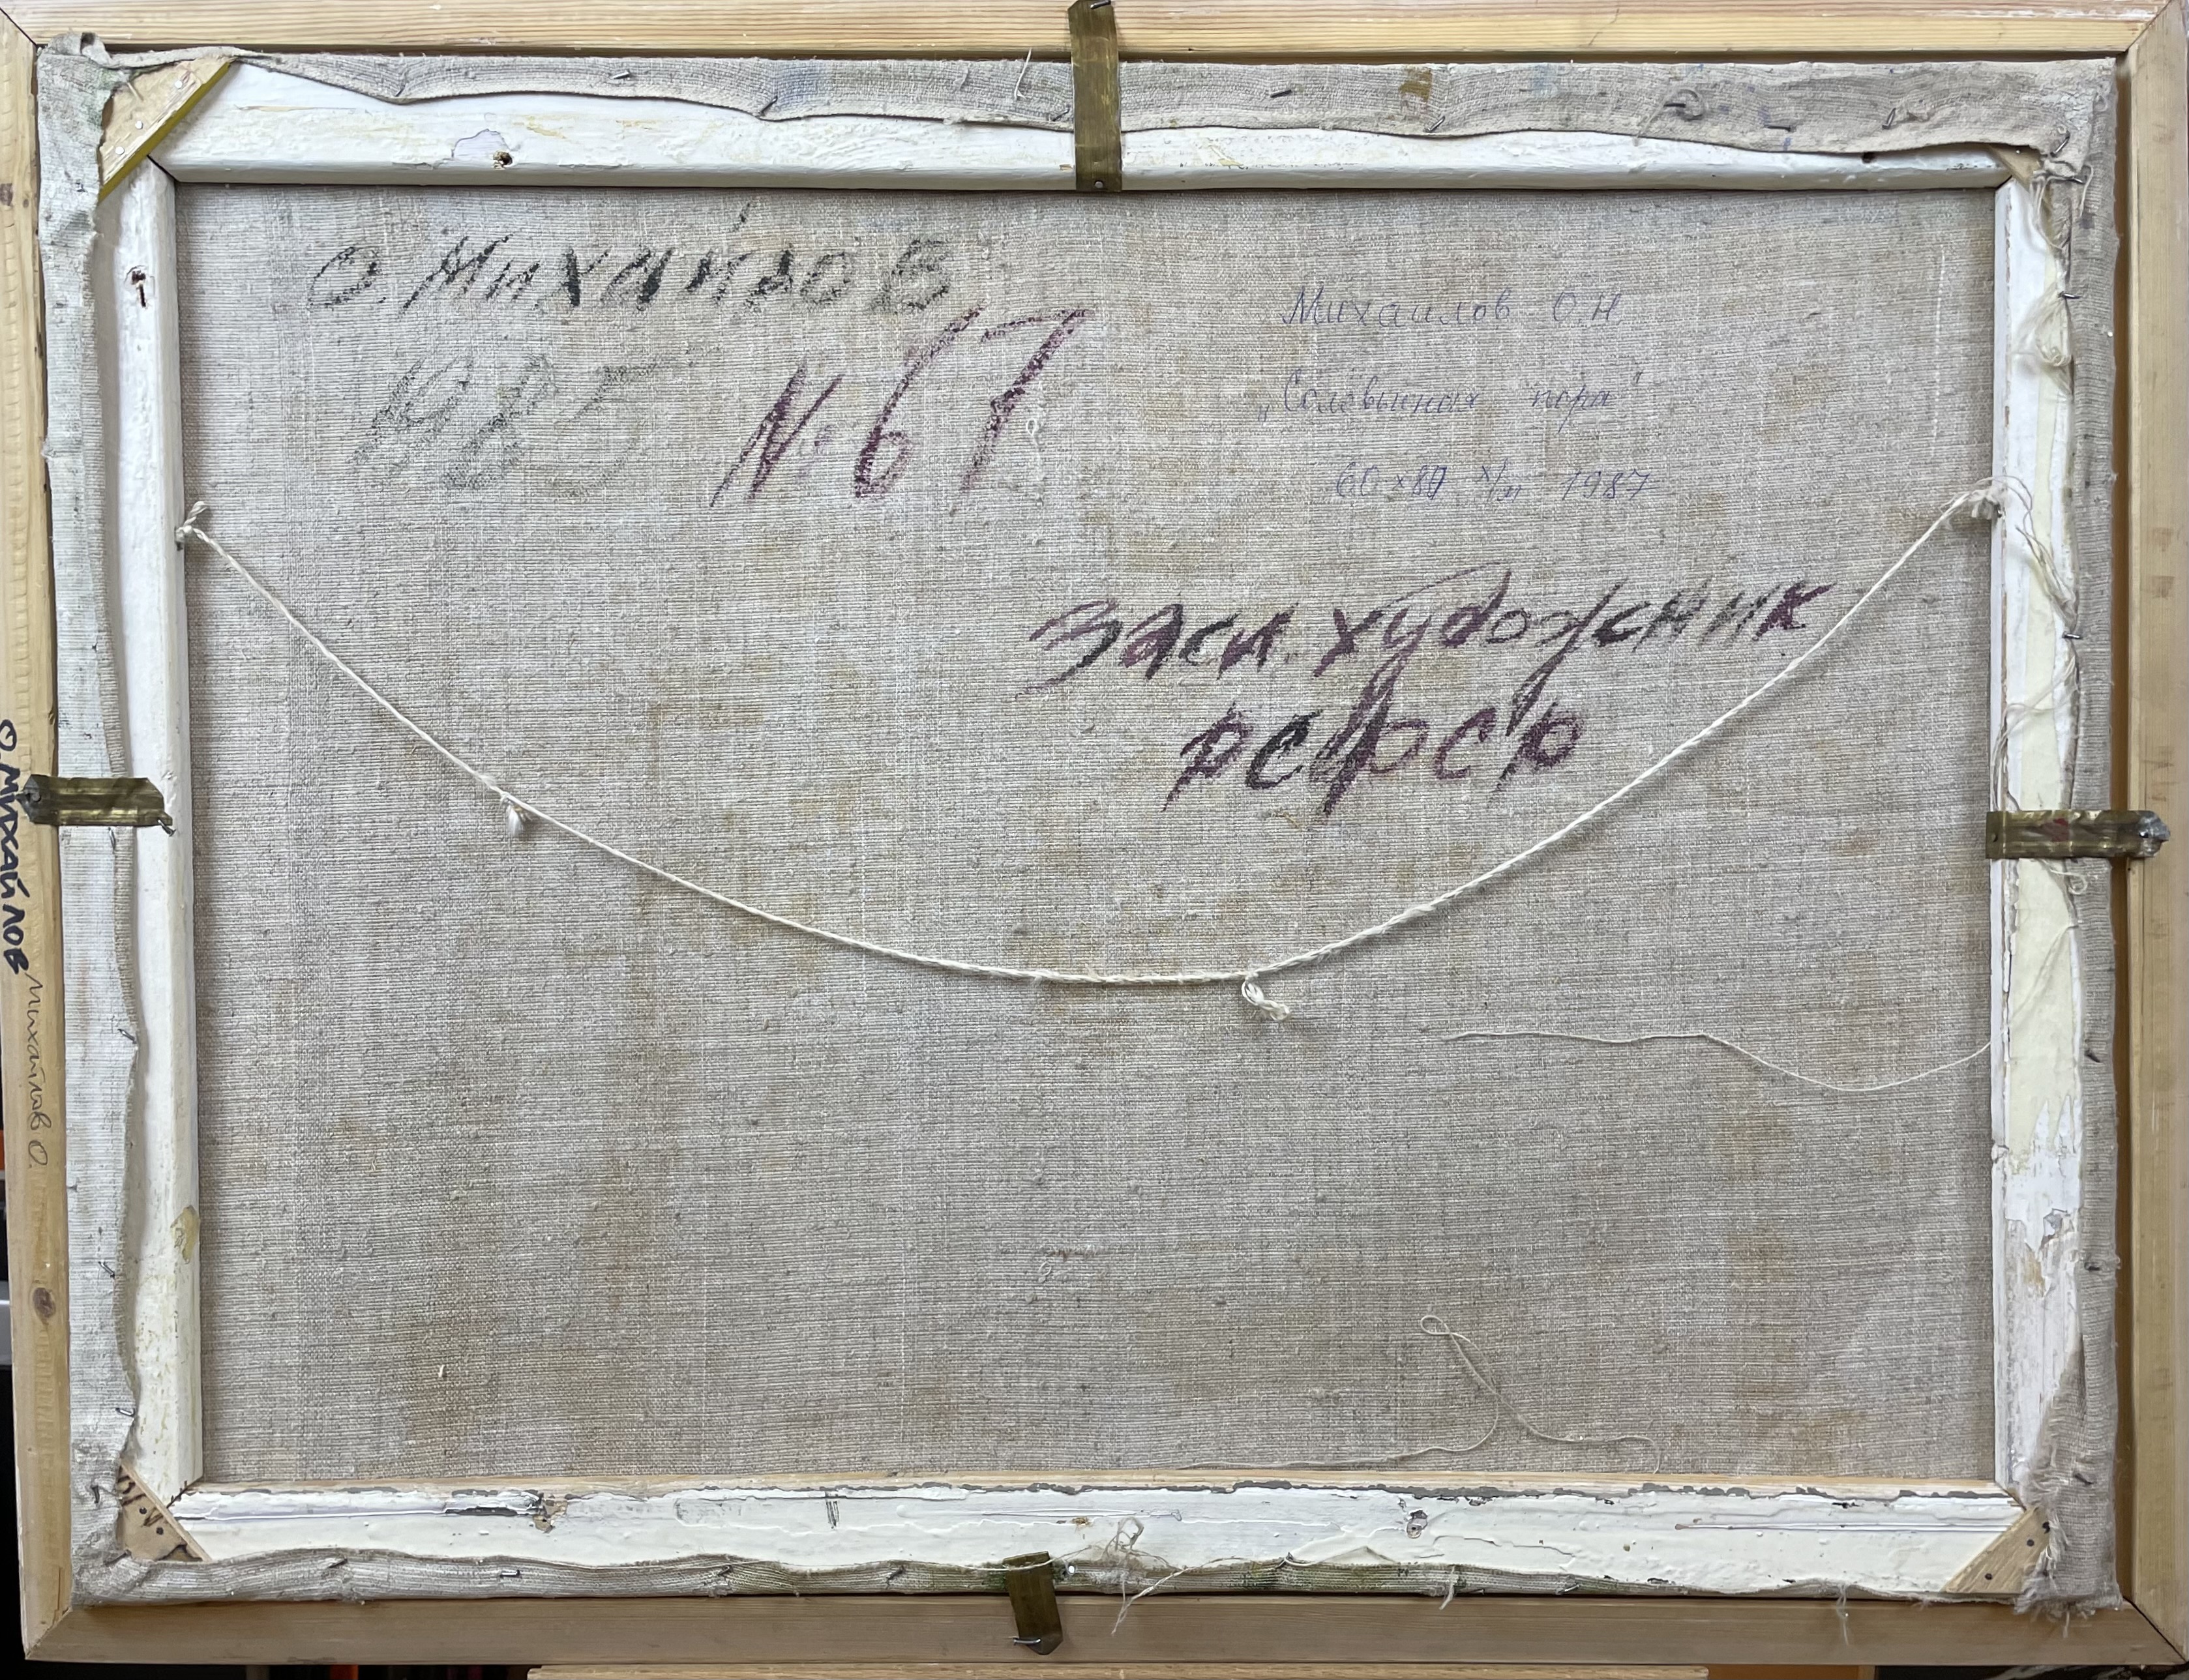 О. Михайлов
1985
№ 67
Михайлов О.Н.
„Соловьиная пора"
60х80 х/м 1987
Засл. художник
РСФСР
О МИХАЙЛОВ
Михайлов О.